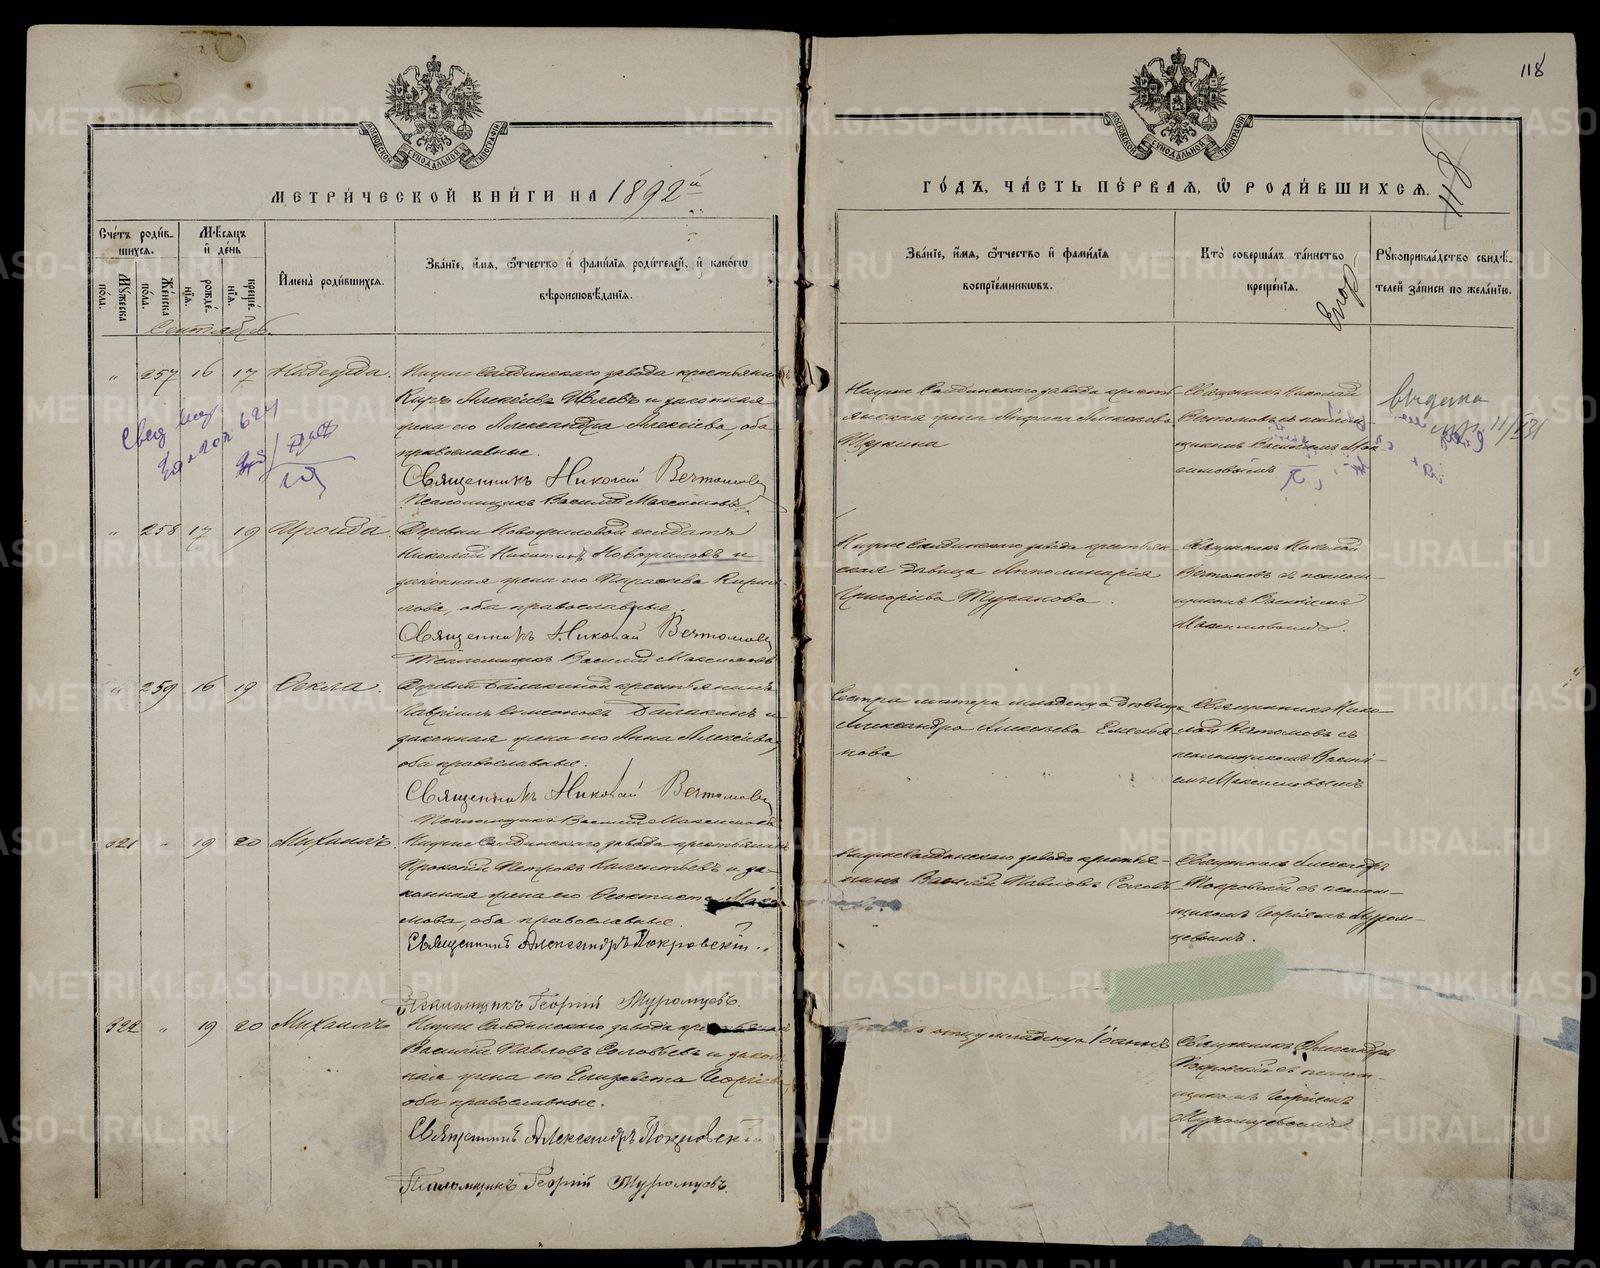 118
118
МОСКОВСКОЙ СѴНОДАЛЬНОЙ ТИПОГРАФІИ
МОСКОВСКОЙ СѴНОДАЛЬНОЙ ТИПОГРАФІИ
МЕТРИ́ЧЕСКОЙ КНИ́ГИ НА 1892й
ГО́ДЪ, ЧА́СТЬ ПЕ́РВАЯ, Ѿ РОДИ́ВШИХСЯ.
Сче́тъ роди́в-
шихся.
Мꙋ́жеска по́ла.
Же́нска по́ла.
Мѣ́сяцъ и҆ де́нь
рожде́нїя.
креще́нїя.
И҆мена̀ роди́вшихся.
Зва́нїе, и҆́мя, ѻ҆́тчество и҆ фами́лїя роди́телей, и҆ како́гѡ
вѣроисповѣ́данїя.
Зва́нїе, и҆́мя, ѻ҆́тчество и҆ фами́лїя
воспрїе́мникѡвъ.
Кто̀ соверша́лъ та́инство
креще́нїя.
Рꙋкоприкла́дство свидѣ́-
телей за́писи по жела́нїю.
Сентябрь.
" 257 16 17 Надежда.
Нижне Салдинскаго завода крестьянинъ
Киръ Алексѣевъ и законная
жена его Александра Алексѣева, оба
православные.
Священникъ Николай Вечтомовъ
Псаломщикъ Василій Максимовъ.
Нижне Салдинскаго завода кресть-
янская жена Алексѣева
Щукина
Священникъ Николай
Вечтомовъ съ псалом-
щикомъ Василіемъ Мак-
симовымъ
выдана
" 258 17 19 Ираида.
Деревни Новожиловой солдатъ
Николай Никитинъ Новожиловъ и
законная жена его Параскева Кирил-
лова, оба православные.
Священникъ Николай Вечтомовъ
Псаломщикъ Василій Максимовъ
Нижне Салдинскаго завода крестьян-
ская дѣвица Апполинарія
Григоріева Туранова.
Священникъ Николай
Вечтомовъ съ псалом-
щикомъ Василіемъ
Максимовымъ.
" 259 16 19 Ѳекла.
Деревни Балакиной крестьянинъ
Гавріилъ Симеоновъ Балакинъ и
законная жена его Анна Алексѣева,
оба православные.
Священникъ Николай Вечтомовъ
Псаломщикъ Василій Максимовъ
Сестра матери младенца дѣвица
Александра Алексѣева Емелья-
нова
Священникъ Нико-
лай Вечтомовъ съ
псаломщикомъ Васи-
емъ Максимовымъ
321 " 19 20 Михаилъ.
Нижне Салдинскаго завода крестьянинъ
Прокопій Петровъ и за-
конная жена его Ѳеоктиста Макси-
мова, оба православные.
Священникъ Александръ Покровскій.
Псаломщикъ Георгій Муромцевъ.
Нижнесалдинскаго завода крестья-
нинъ Василій Павловъ Соловь-
Священникъ Александръ
Покровскій съ псалом-
щикомъ Георгіемъ Муром-
цевымъ.
322 " 19 20 Михаилъ
Нижне Салдинскаго завода крестьянинъ
Василій Павловъ Соловьевъ и закон-
ная жена его Елизавета Георгіева,
оба православные.
Священникъ Александръ Покровскій
Псаломщикъ Георгій Муромцевъ.
отцу младенца Іоаннъ
Священникъ Александръ
Покровскій съ псалом-
щикомъ Георгіемъ
Муромцевымъ
METRIKI.GASO-URAL.RU